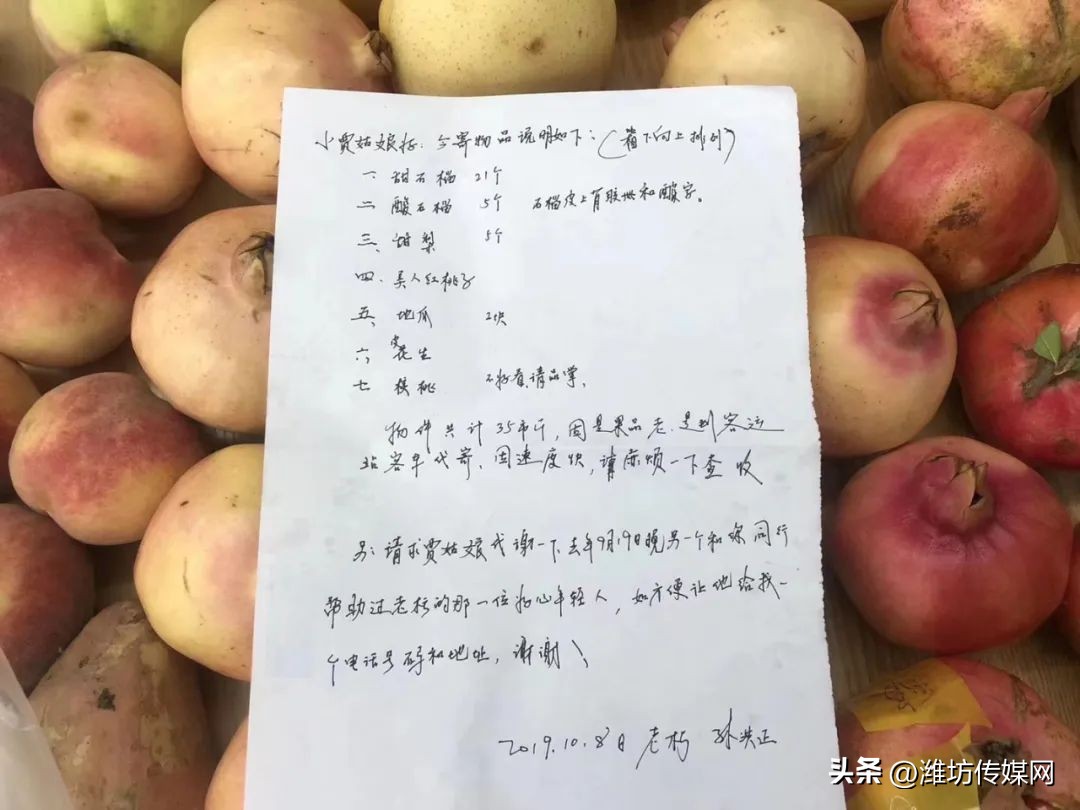 小贾姑娘好：今寄物品说明如下：（着下向上排列）
一 甜石榴 21个
二 酸石榴 5个 石榴皮上有胶带和酸字。
三、甜梨 5个
四、美人红桃子
五、地瓜 2块
六 花生
七 核桃 不好看请品尝。
物件共计35市斤，因是果品老是到客运
站客车代寄、因速度快，请麻烦一下查收
另：请求贾姑娘代谢一下去年9月19日晚另一个和你同行
帮助过老朽的那一位好心年轻人，如方便让他给我一
个电话号码和地址，谢谢！
2019.10.8日 老朽 孙洪正
头条 @潍坊传媒网